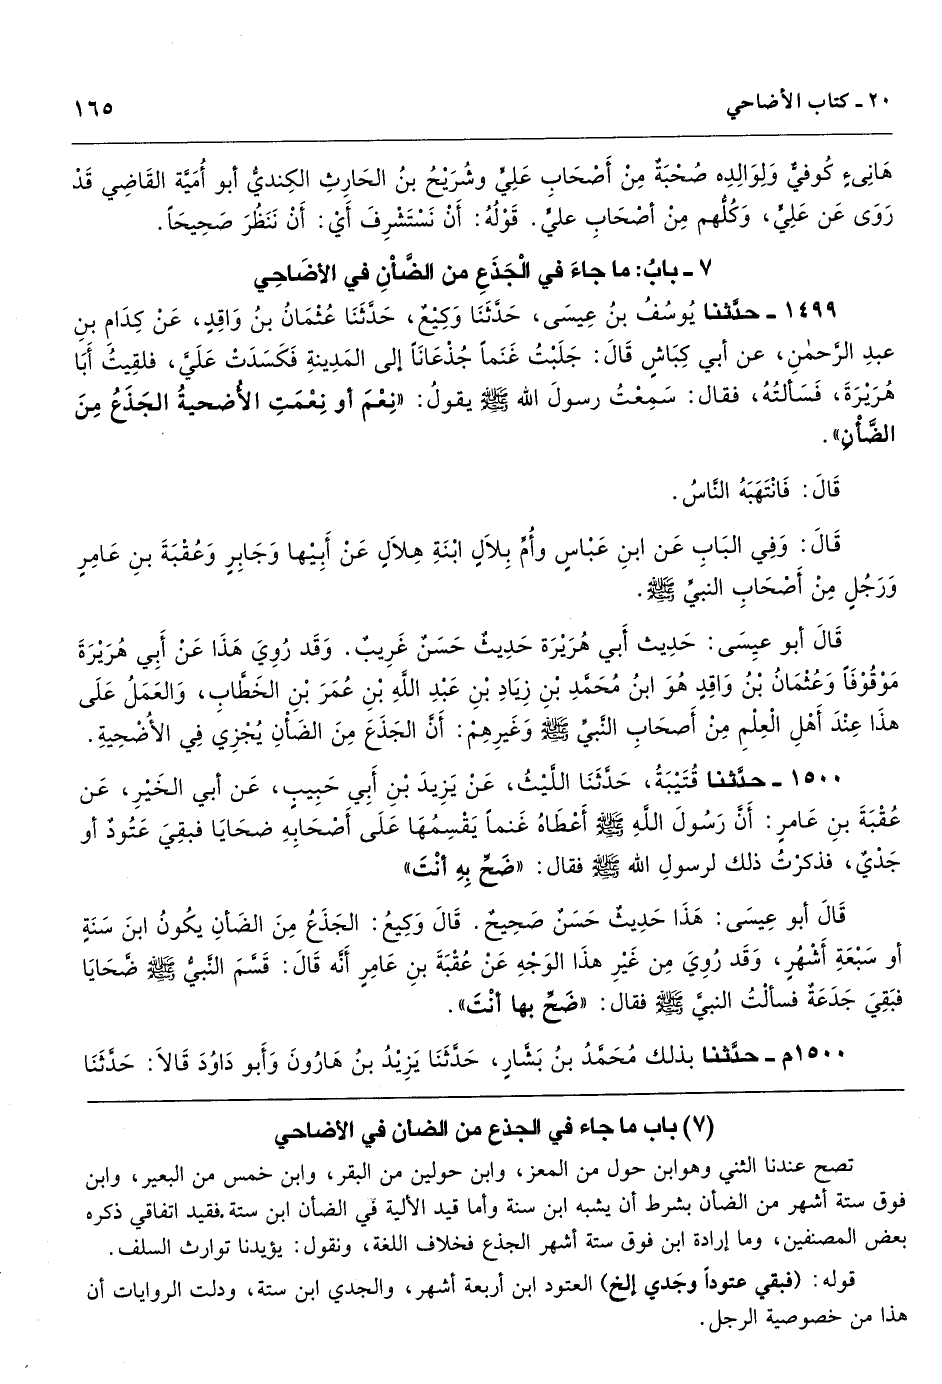 ٢٠ ـ كتاب الأضاحي
١٦٥
هَانِىءٍ كُوفيٌّ وَلِوَالِدِه صُحْبَةٌ مِنْ أَصْحَابِ عَلِيٍّ وشُرَيْحُ بنُ الحَارِثِ الكِنديُّ أبو أُمَيَّة القَاضِي قَدْ
رَوَى عَن عَلِيٍّ، وَكُلُّهم مِنْ أصْحَابِ عليٍّ. قَوْلُهُ: أَنْ نَسْتَشْرِفَ أَيْ: أَنْ نَنَظُرَ صَحِيحَاً.
٧ ـ بابُ: ما جاءَ في الْجَذَعِ من الضَّأْنِ في الأضَاحِي
١٤٩٩ ـ حدَّثنا يُوسُفُ بنُ عِيسَى، حَدَّثَنَا وَكِيْعٌ، حَدَّثَنَا عُثْمَانُ بنُ وَاقِدٍ، عَنْ كِدَامِ بنِ
عبدِ الرَّحمٰنِ، عن أبي كِبَاشٍ قَالَ: جَلَبْتُ غَنَماً جُذْعَاناً إلى المَدِينةِ فَكَسَدَتْ عَلَيَّ، فلقِيتُ أَبَا
هُرَيْرَةَ، فَسَألتُهُ، فقال: سَمِعْتُ رسولَ الله ﷺ يقولُ: «نِعْمَ أو نِعْمَتِ الأُضحيةُ الجَذَعُ مِنَ
الضَّأْنِ».
قَالَ: فَانْتَهَبَهُ النَّاسُ.
قَالَ: وَفِي البَابِ عَن ابنِ عَبَّاسٍ وأُمِّ بِلاَلِ ابْنَةِ هِلاَلٍ عَنْ أَبِيْها وَجَابِرٍ وَعُقْبَةَ بنِ عَامِرٍ
وَرَجُلٍ مِنْ أَصْحَابِ النبيِّ ﷺ.
قَالَ أبو عيِسَى: حَدِيث أبي هُرَيْرَة حَدِيثٌ حَسَنٌ غَرِيبٌ. وَقَد رُوِيَ هَذَا عَنْ أبِي هُرَيْرَةَ
مَوْقُوفَاً وَعُثْمَانُ بْنُ وَاقِدٍ هُوَ ابنُ مُحَمَّدِ بْنِ زِيَادِ بْنِ عَبْدِ اللَّهِ بْنِ عُمَرَ بْنِ الخَطَّابِ، وَالعَمَلُ عَلَى
هذَا عِنْدَ أَهْلِ الْعِلْمِ مِنْ أَصحَابِ النَّبيِّ ﷺ وَغَيرِهِمْ: أَنَّ الجَذَعَ مِنَ الضَأْنِ يُجْزِي فِي الأُضْحِيةِ.
١٥٠٠ ـ حدَّثنا قُتَيْبَةُ، حَدَّثَنَا اللَّيْثُ، عَنْ يَزِيدَ بْنِ أَبِي حَبِيبٍ، عَن أبي الخَيْرِ، عَن
عُقْبَةَ بنِ عَامرٍ: أَنَّ رَسُولَ اللَّهِ ﷺ أَعْطَاهُ غَنماً يَقْسِمُهَا عَلَى أَصْحَابِهِ ضحَايَا فبقِيَ عَتُودٌ أو
جَدْيٌ، فذكرْتُ ذلك لرسولِ الله ﷺ فقال: «ضَحِّ بِهِ أنْتَ»
قَالَ أبو عِيسَى: هَذَا حَدِيثٌ حَسَنٌ صَحِيحٌ. قَالَ وَكِيعٌ: الجَذَعُ مِنَ الضَأنِ يكُونُ ابنَ سَنَةٍ
أو سَبْعَةِ أَشْهُرٍ، وَقَد رُوِيَ مِن غَيْرِ هذا الوَجْهِ عَنْ عُقْبَةَ بنِ عَامِرٍ أنَّه قَالَ: قَسَّمَ النَّبيُّ ﷺ ضَّحَايَا
فبَقِيَ جَدَعَةٌ فسألتُ النبيَّ ﷺ فقال: «ضَحِّ بها أنْتَ».
١٥٠٠م ـ حدَّثنا بذلك مُحَمَّدُ بنُ بَشَّارٍ، حَدَّثَنَا يَزِيْدُ بنُ هَارُونَ وَأَبو دَاوُدَ قَالاَ: حَدَّثَنَا
(٧) باب ما جاء في الجذع من الضأن في الأضاحي
تصح عندنا الثني وهوابن حول من المعز، وابن حولين من البقر، وابن خمس من البعير، وابن
فوق ستة أشهر من الضأن بشرط أن يشبه ابن سنة وأما قيد الألية في الضأن ابن ستة فقيد اتفاقي ذكره
بعض المصنفين، وما إرادة ابن فوق ستة أشهر الجذع فخلاف اللغة، ونقول: يؤيدنا توارث السلف.
قوله: (فبقي عتوداً وجَدي إلخ) العتود ابن أربعة أشهر، والجدي ابن ستة، ودلت الروايات أن
هذا من خصوصية الرجل.